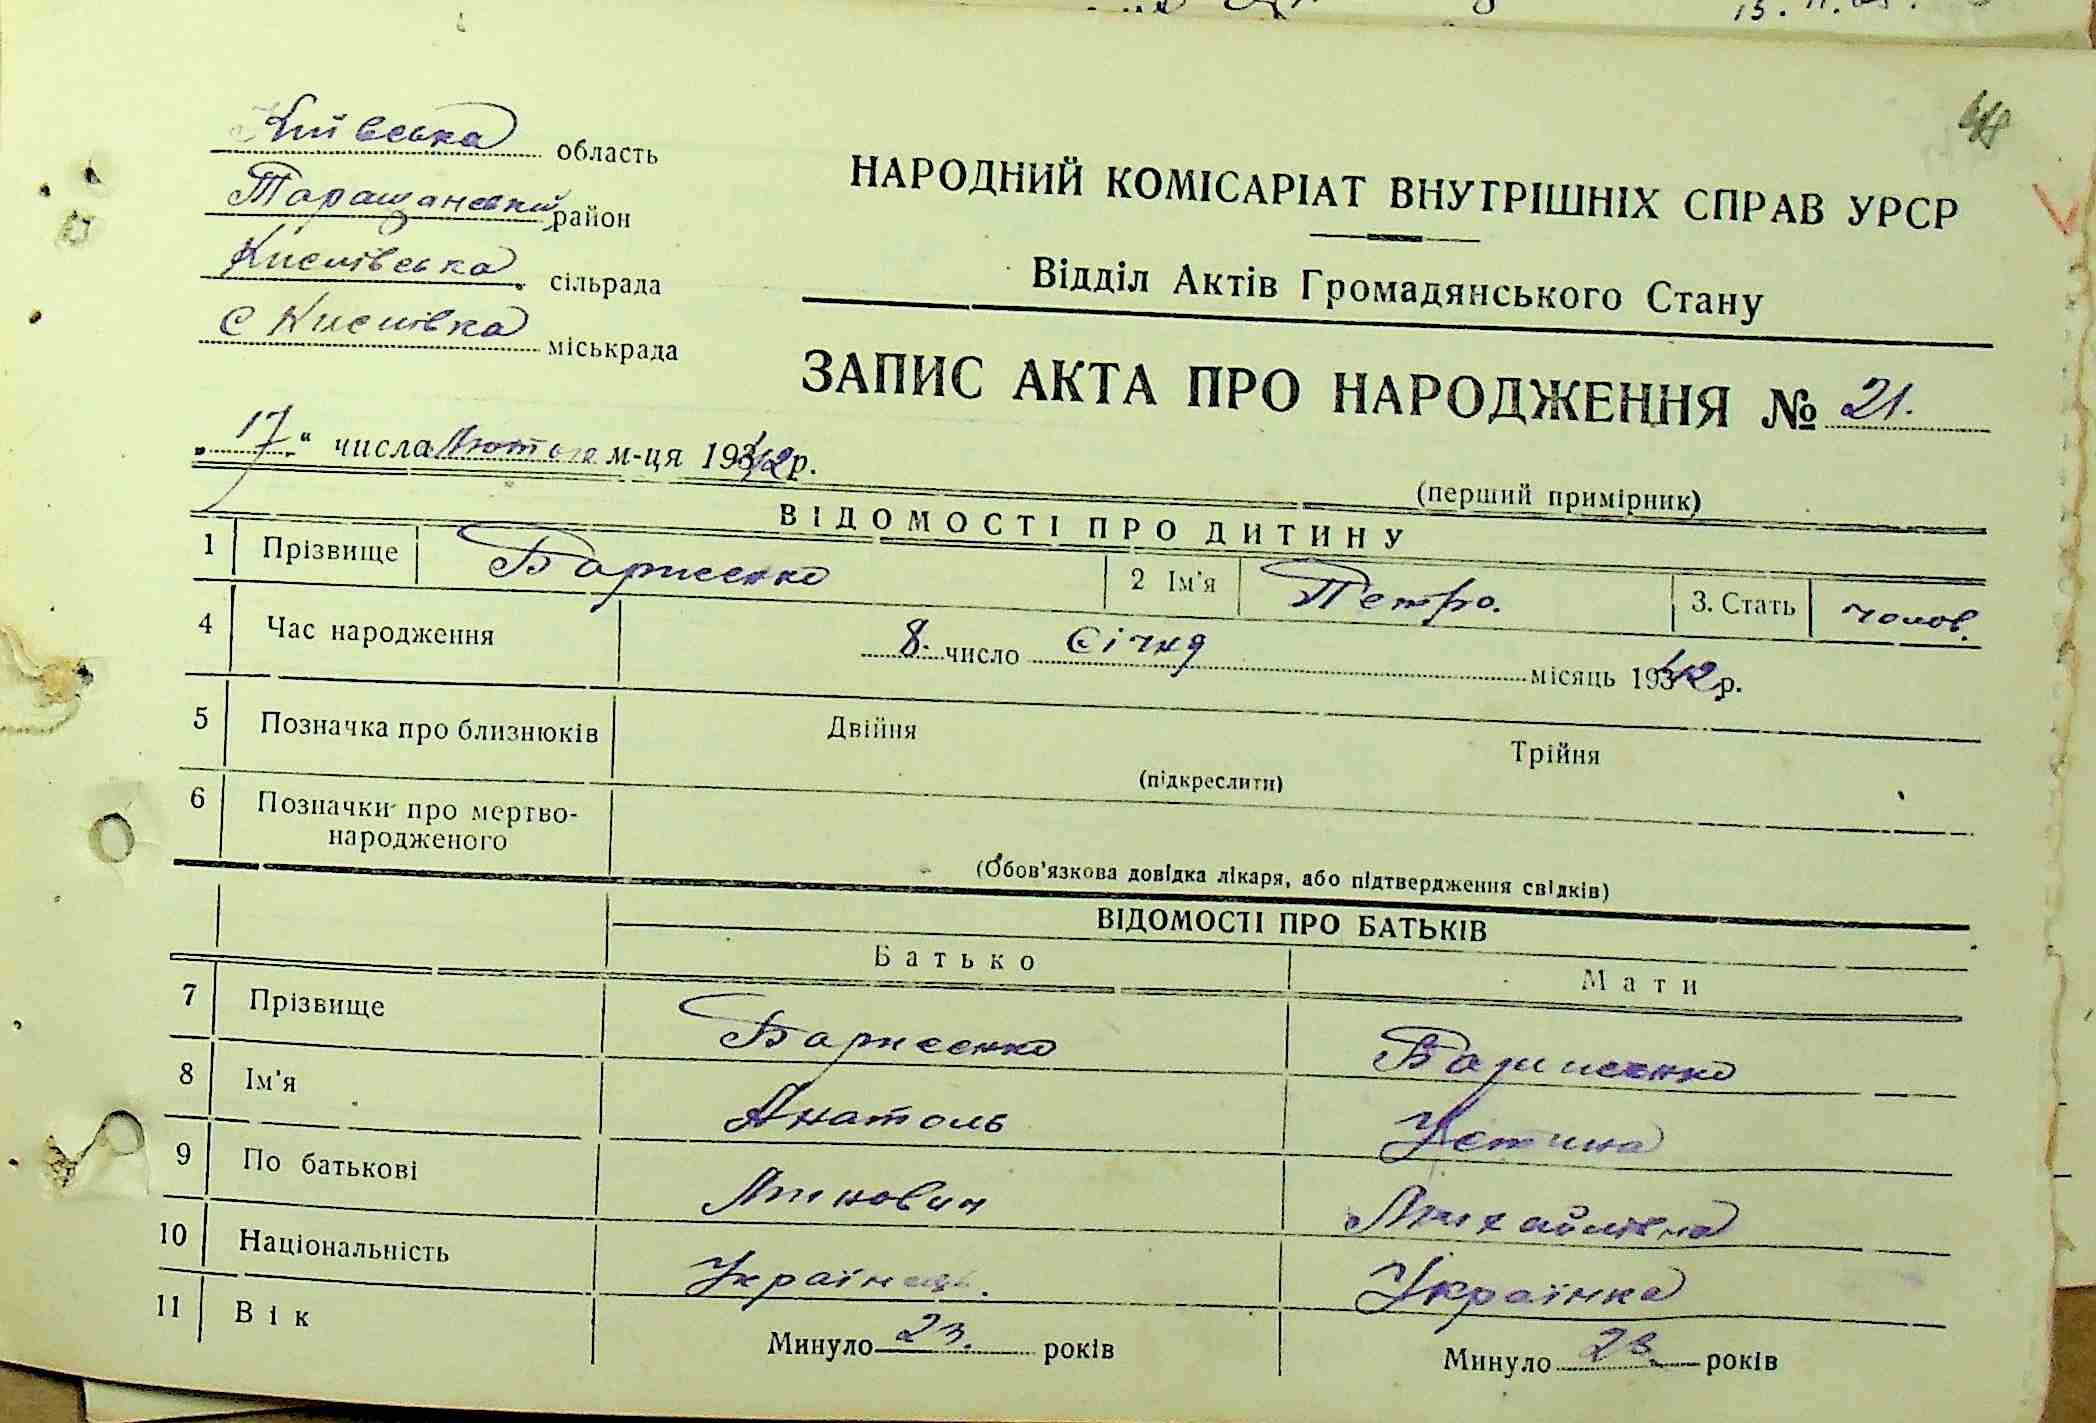 Київська область
Таращанський район
Кислівська сільрада
с Кислівка міськрада
НАРОДНИЙ КОМІСАРІАТ ВНУТРІШНІХ СПРАВ УРСР
Відділ Актів Громадянського Стану
ЗАПИС АКТА ПРО НАРОДЖЕННЯ № 21.
„17“ числа Лютого м-ця 1942 р.
(перший примірник)
ВІДОМОСТІ ПРО ДИТИНУ
1 Прізвище Барисенко 2 Ім'я Петро. 3. Стать чолов.
4 Час народження 8 число Січня місяць 1942 р.
5 Позначка про близнюків Двійня Трійня
(підкреслити)
6 Позначки про мертво-
народженого
(Обов'язкова довідка лікаря, або підтвердження свідків)
ВІДОМОСТІ ПРО БАТЬКІВ
Батько Мати
7 Прізвище Барисенко Барисенко
8 Ім'я Анатоль Устина
9 По батькові Михайлівна
10 Національність Українець. Українка
11 Вік Минуло 23. років Минуло 23. років